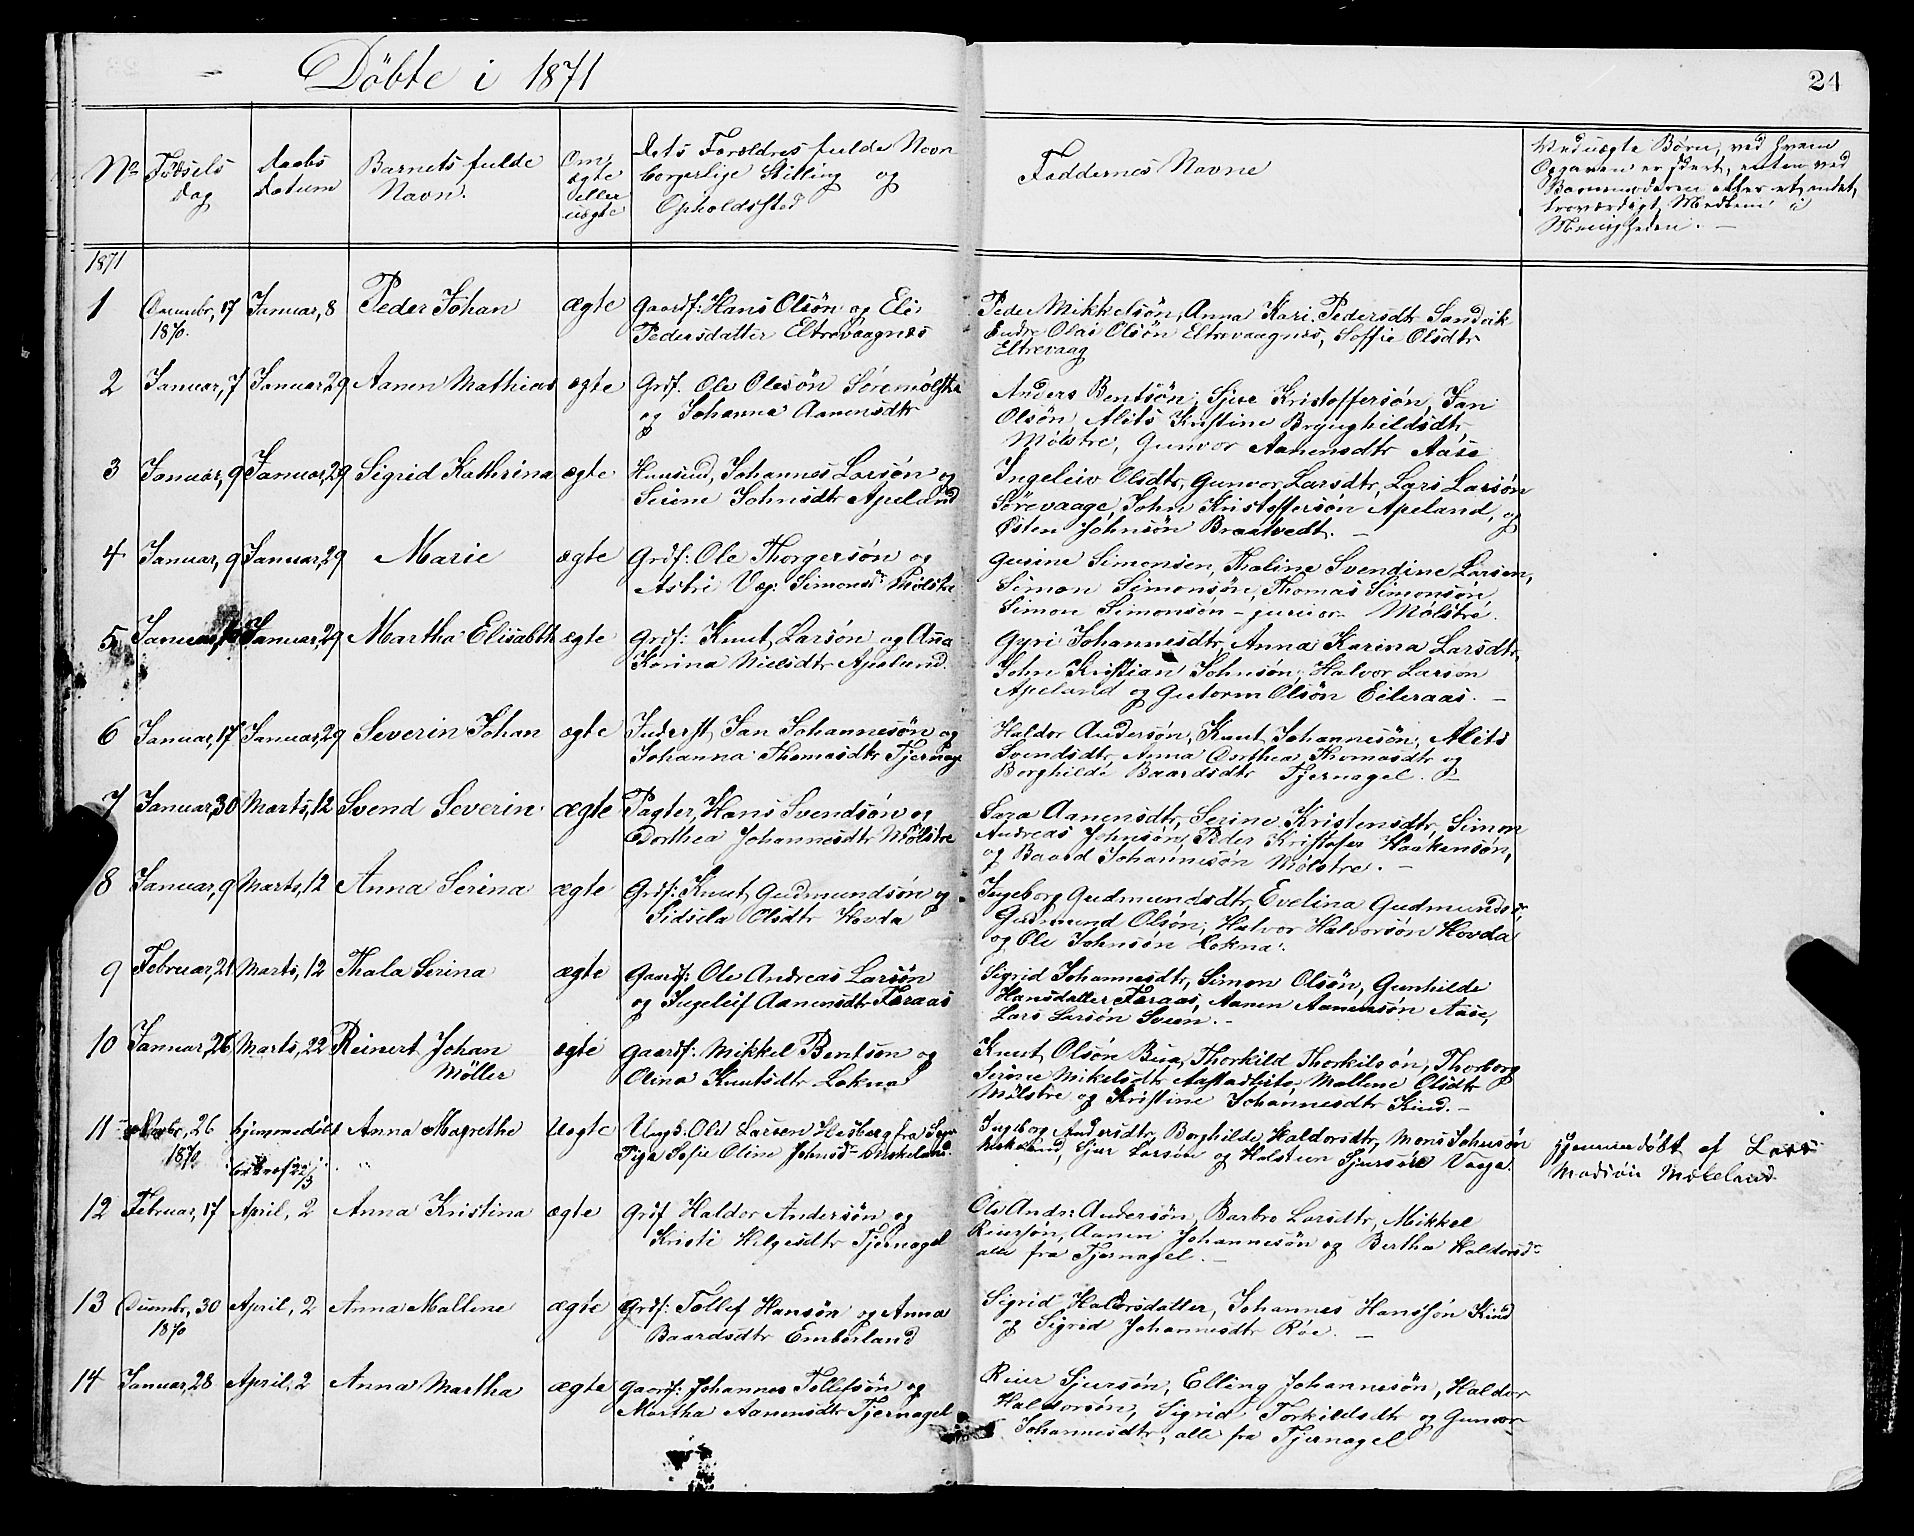 Döbte i 1871
24
No
Fødsels Dag
Daabs Datum
Barnets fulde Navn.
Om ægte eller uægte
Dets Forældres fulde Navn borgerlige Stilling og Opholdssted
Faddernes Navne
Ved uægte Børn, ved hvem Opgaven er skeet, enten ved Barnemoderen eller et andet, troværdigt Medlem i Menigheden. —
1871
1 Decembr, 17 1870. Januar, 8 Peder Johan ægte Gaardf: Hans Olsön og Eli Pedersdatter Eltrevaagnes
Peder Mikkelsön, Anna Kari Pedersdtr Sandvik
Endre Olai Olsön Eltrevaagnes, Soffie Olsdtr
Eltrevaag
2 Januar, 7 Januar 29 Aanen Mathias ægte Grdf. Ole Olesön Söremølstre og Johanna Aanensdtr
Anders Bentsön, Sjur Kristoffersön, Jan
Olsön, Alits Kristine Brynghildsdtr
Mölstre, Gunvor Aanensdtr Aase
3 Januar, 9 Januar, 29 Sigrid Kathrina ægte Huusmd, Johannes Larsön og Serine Johnsdtr Apeland
Ingeleiv Olsdtr, Gunvor Larsdtr, Lars Larsön
Sörevaage, John Kristoffersön Apeland, og
Østen Johnsön Braatvedt. —
4 Januar, 9 Januar, 29 Marie ægte Grdf: Ole Thorgersön og Astri Simonsdr Mølstre
Gusine Simonsen, Thaline Svendine Larsen,
Simon Simonsön, Thomas Simonsön,
Simon Simonsön – junior – Mölstre.
5 Januar Januar, 29 Martha Elisabeth ægte Grdf: Knut Larsön og Ana Karina Nielsdtr Apeland.
Gyri Johannesdtr, Anna Karina Larsdtr,
John Kristian Johnsön, Halvor Larsön
Apeland og Gutorm Olsön Eileraas. —
6 Januar, 17 Januar, 29 Severin Johan ægte Inderst, Jan Johannesön og Johanna Thomasdtr Tjernag
Haldor Andersön, Knut Johannesön, Alits
Svendsdtr, Anna Dorthea Thomasdtr og
Borghilde Baardsdtr Tjernagel. —
7 Januar, 30 Marts, 12 Svend Severin ægte Pagter, Hans Svendsön og Dorthea Johannesdtr Mölstre
Sara Aanensdtr, Serine Kristensdtr, Simon
Andreas Johnsön, Peder Kristofer Haakensön,
og Baard Johannesön Mölstre. —
8 Januar, 9 Marts, 12 Anna Serina ægte Grdf: Knut Gudmundsön og Sidsela Olsdtr Hovda
Ingeborg Gudmundsdtr, Evelina Gudmundsdr,
Gudmund Olsön, Halvor Halvorsön Hovda
og Ole Johnsön Lokna.
9 Februar, 21 Marts, 12 Thala Serina ægte Gaardf: Ole Andreas Larsön og Ingeleif Aanensdtr Færaas
Sigrid Johannesdtr, Simon Olsön, Gunhilde
Hansdatter Færaas, Aanen Aanensön Aase,
Lars Larsön Sveen. —
10 Januar, 26 Marts, 22 Reinert Johan Möller ægte Gaardf: Mikkel Bentsen og Olina Knutsdtr Lokna
Knut Olsön Bua, Thorkild Thorkilsön, Thorborg
Serine Mikelsdtr Mallene Olsdtr
Mölstre og Kristine Johannesdtr Kind. —
11 Decbr, 26 1870 hjemmedöbt Anna Magrethe Uægte Ungk. Ole Larsen Hesberg fra Pige Sofie Oline Johnsdr
Ingeborg Andersdtr, Borghilde Haldorsdtr, Mons Johnsön
Sjur Larsön og Halsteen Sjursön Vaage.
Hjemmedöbt af Lars Madsön Mökeland
12 Februar, 17 April, 2 Anna Kristina ægte Grdf Haldor Andersön og Kristi Helgesdtr Tjernagel
Ole Andr: Andersön, Barbro Larsdtr, Mikkel
Reiersön, Aanen Johannesön og Bertha Haldorsdr
alle fra Tjernagel. —
13 Decembr, 30 1870 April, 2 Anna Mallene ægte Grdf: Tollef Hansön og Anna Baardsdtr Emberland
Sigrid Haldorsdatter, Johannes Hanssön Kind
og Sigrid Johannesdtr Röe. —
14 Januar, 28 April, 2 Anna Martha ægte Gaardf: Johannes Tollefsön og Martha Aanensdtr Tjernagel
Reier Sjursön, Elling Johannesön, Haldor
Haldorsön, Sigrid Torkildsdtr og Gunvor
Johannesdtr, alle fra Tjernagel